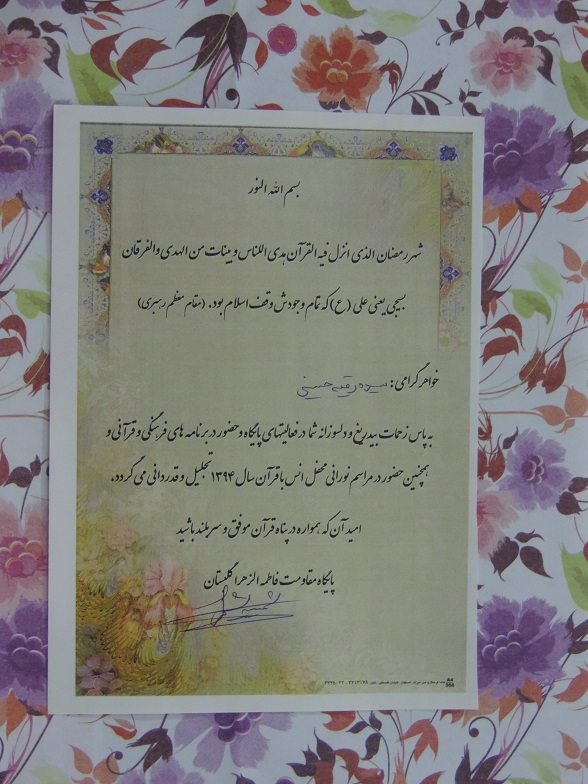 بسم الله النور
شهر رمضان الذی انزل فیه القرآن هدی اللناس و بینات من الهدی و الفرقان
بسیجی یعنی علی (ع) که تمام وجودش وقف اسلام بود. (مقام معظم رهبری)
خواهر گرامی: سیده رقیه حسینی
به پاس زحمات بیدریغ و دلسوزانه شما در فعالیتهای پایگاه و حضور در برنامه های فرهنگی و قرآنی و
همچنین حضور در مراسم نورانی محفل انس با قرآن سال ۱۳۹۴ تجلیل و قدردانی می گردد.
امید آن که همواره در پناه قرآن موفق و سربلند باشید
پایگاه مقاومت فاطمه الزهرا گلستان
A4